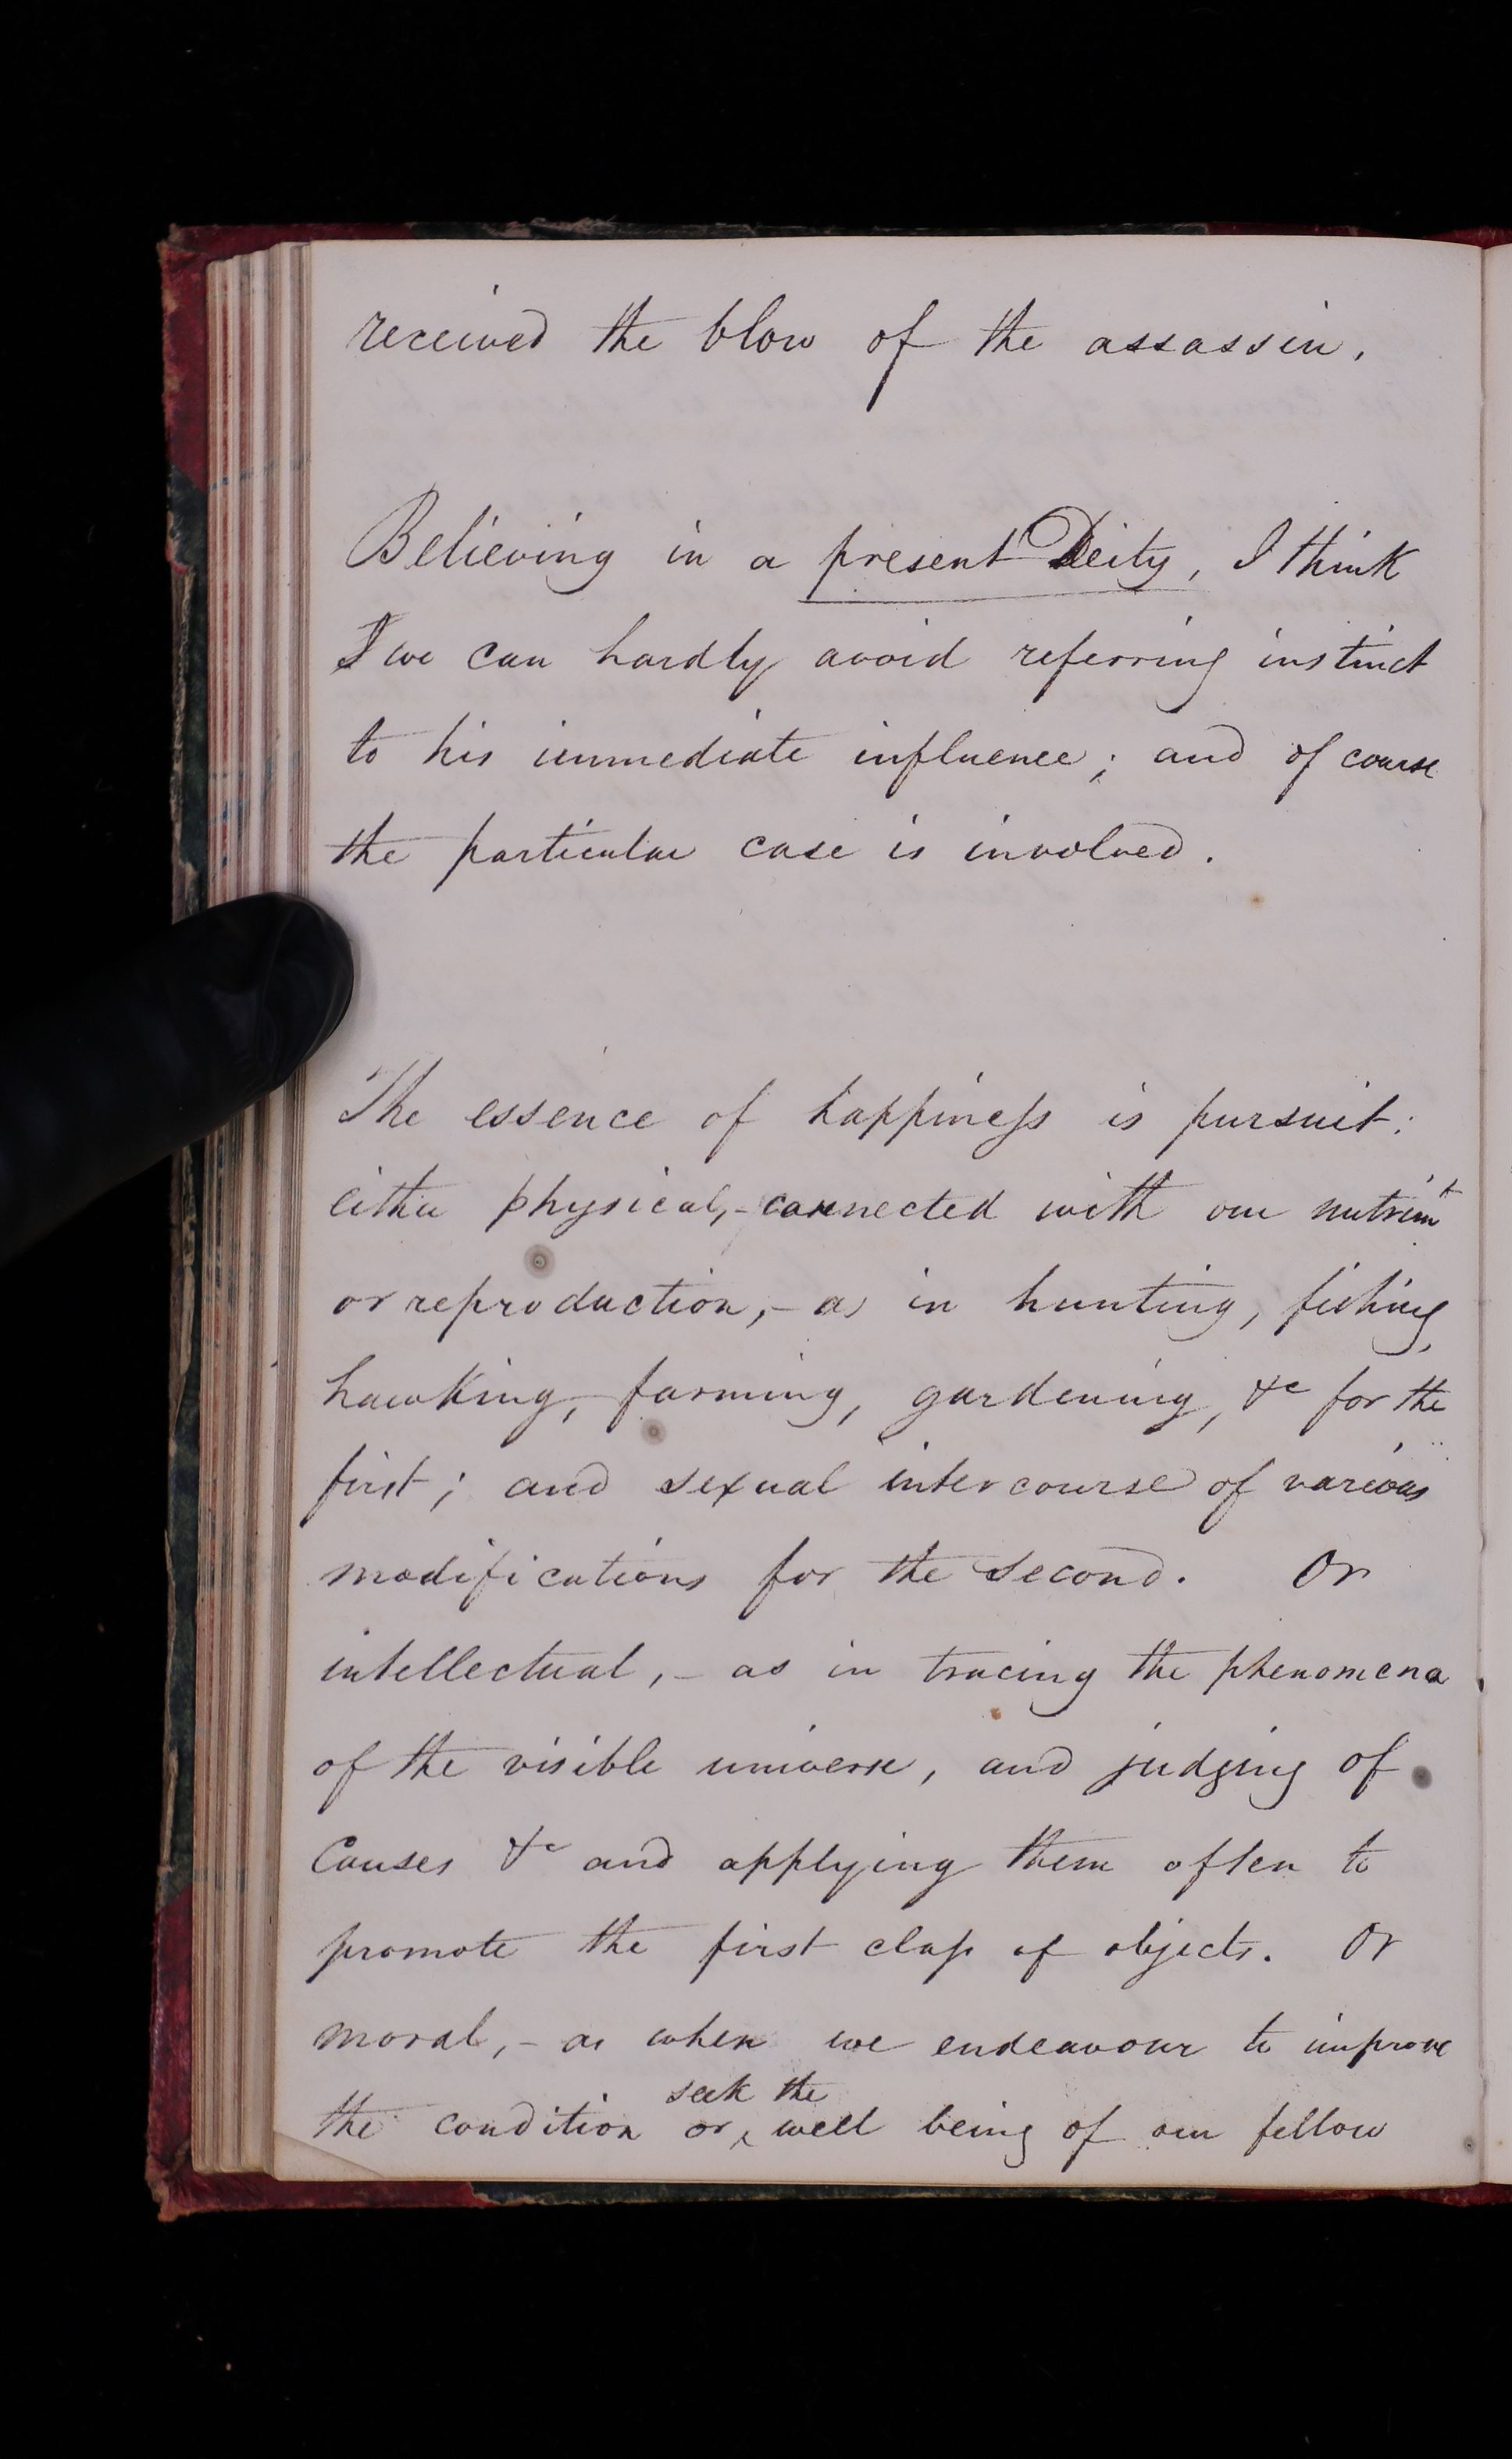 received the blow of the assassin.
Believing in a present Deity, I think
I we can hardly avoid referring instinct
to his immediate influence; and of course
the particular case is involved.
The essence of happiness is pursuit:
either physical,- connected with our nutrimt
or reproduction,- as in hunting, fishing,
hawking, farming, gardening, &c for the
first; and sexual intercourse of various
modifications for the second. Or
intellectual,- as in tracing the phenomena
of the visible universe, and judging of
Causes &c and applying them often to
promote the first class of objects. Or
moral,- as when we endeavour to improve
seek the
the condition or ‸ well being of our fellow